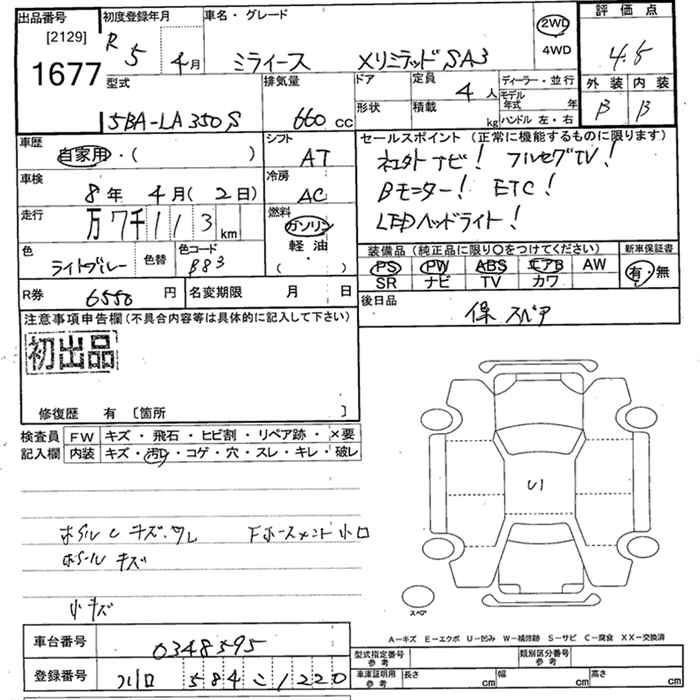 出品番号 [2129] 1677
初度登録年月 R 5年 4月
車名・グレード ミライース XリミテッドSA3
2WD 4WD
評価点 4.5
型式 5BA-LA350S
排気量 660 cc
ドア 形状
定員 4人
積載 kg
ディーラー・並行
モデル年式 年
ハンドル 左・右
外装 内装
B B
車歴 自家用・( )
シフト AT
車検 8年 4月(2日)
冷房 AC
走行 万7千113 km
燃料 ガソリン 軽油 ・ ( )
色 ライトブルー 色替 色コード B83
セールスポイント(正常に機能するものに限ります)
ナビ! フルセグTV!
Bモニター! ETC!
LEDヘッドライト!
装備品(純正品に限り○をつけてください) 新車保証書
PS PW ABS エアB AW 有・無
SR ナビ TV カワ
R券 6550円 名変期限 月 日
後日品 保 スペア
注意事項申告欄(不具合内容等は具体的に記入して下さい)
初出品
修復歴 有 〔箇所 〕
検査員 FW キズ・飛石・ヒビ割・リペア跡・×要
記入欄 内装 キズ・汚レ・コゲ・穴・スレ・キレ・破レ
U1
キズ・ワレ 小
キズ
小キズ
スペア
A-キズ E-エクボ U-凹み W-補修跡 S-サビ C-腐食 XX-交換済
車台番号 0348595
登録番号 川口 584 こ 1220
型式指定番号 参考 類別区分番号 参考
車庫証明用 参考 長さ cm 幅 cm 高さ cm